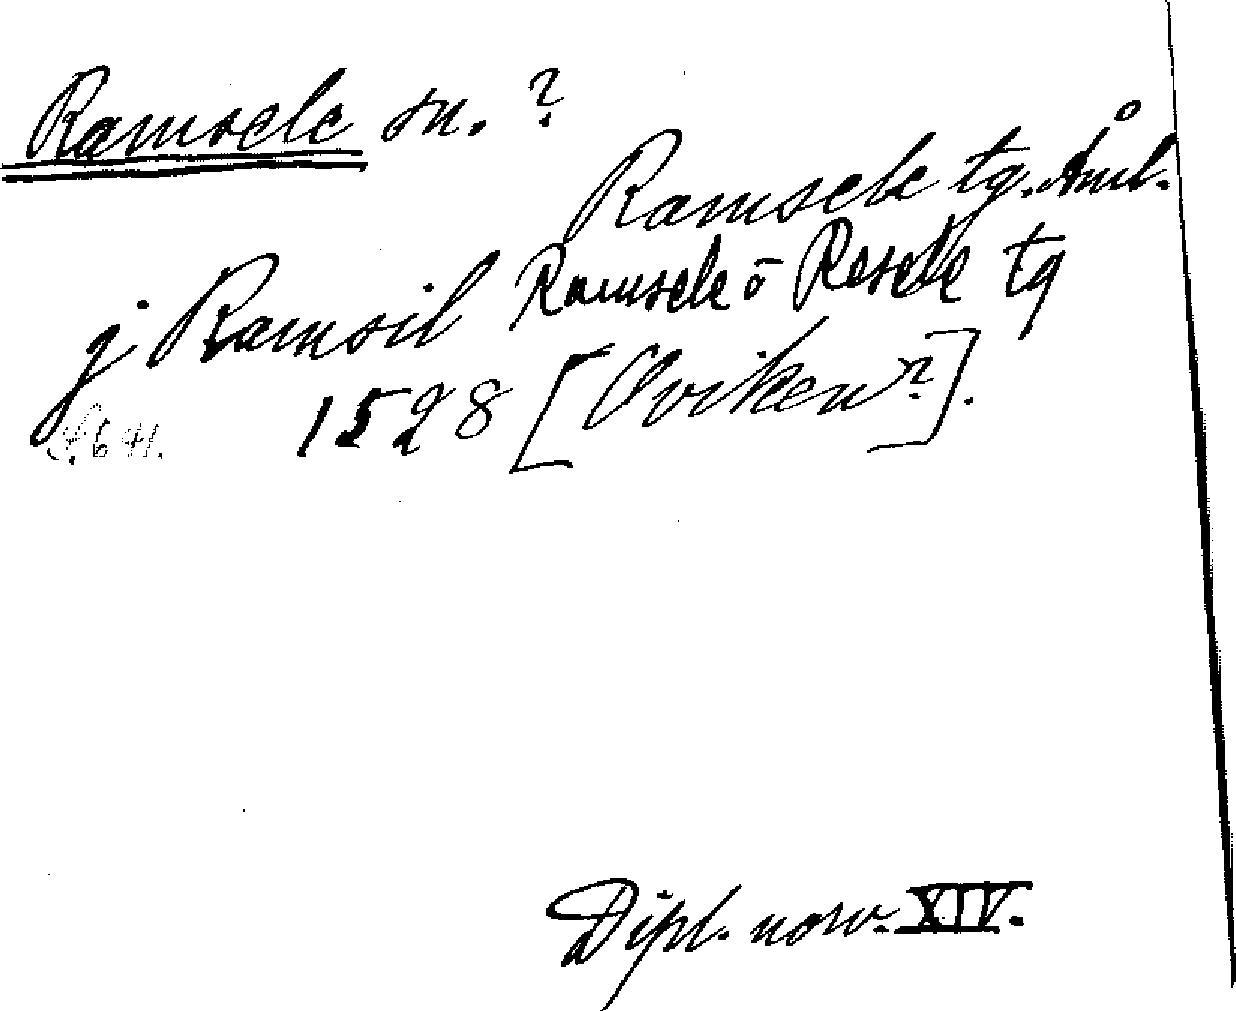 Ramsele sn. ?
Ramsele tg. Åml.
Ramsele o Resele tg
j Ramsil
1528 [Oviken?].
S. 641.
Dipl. norv. XIV.